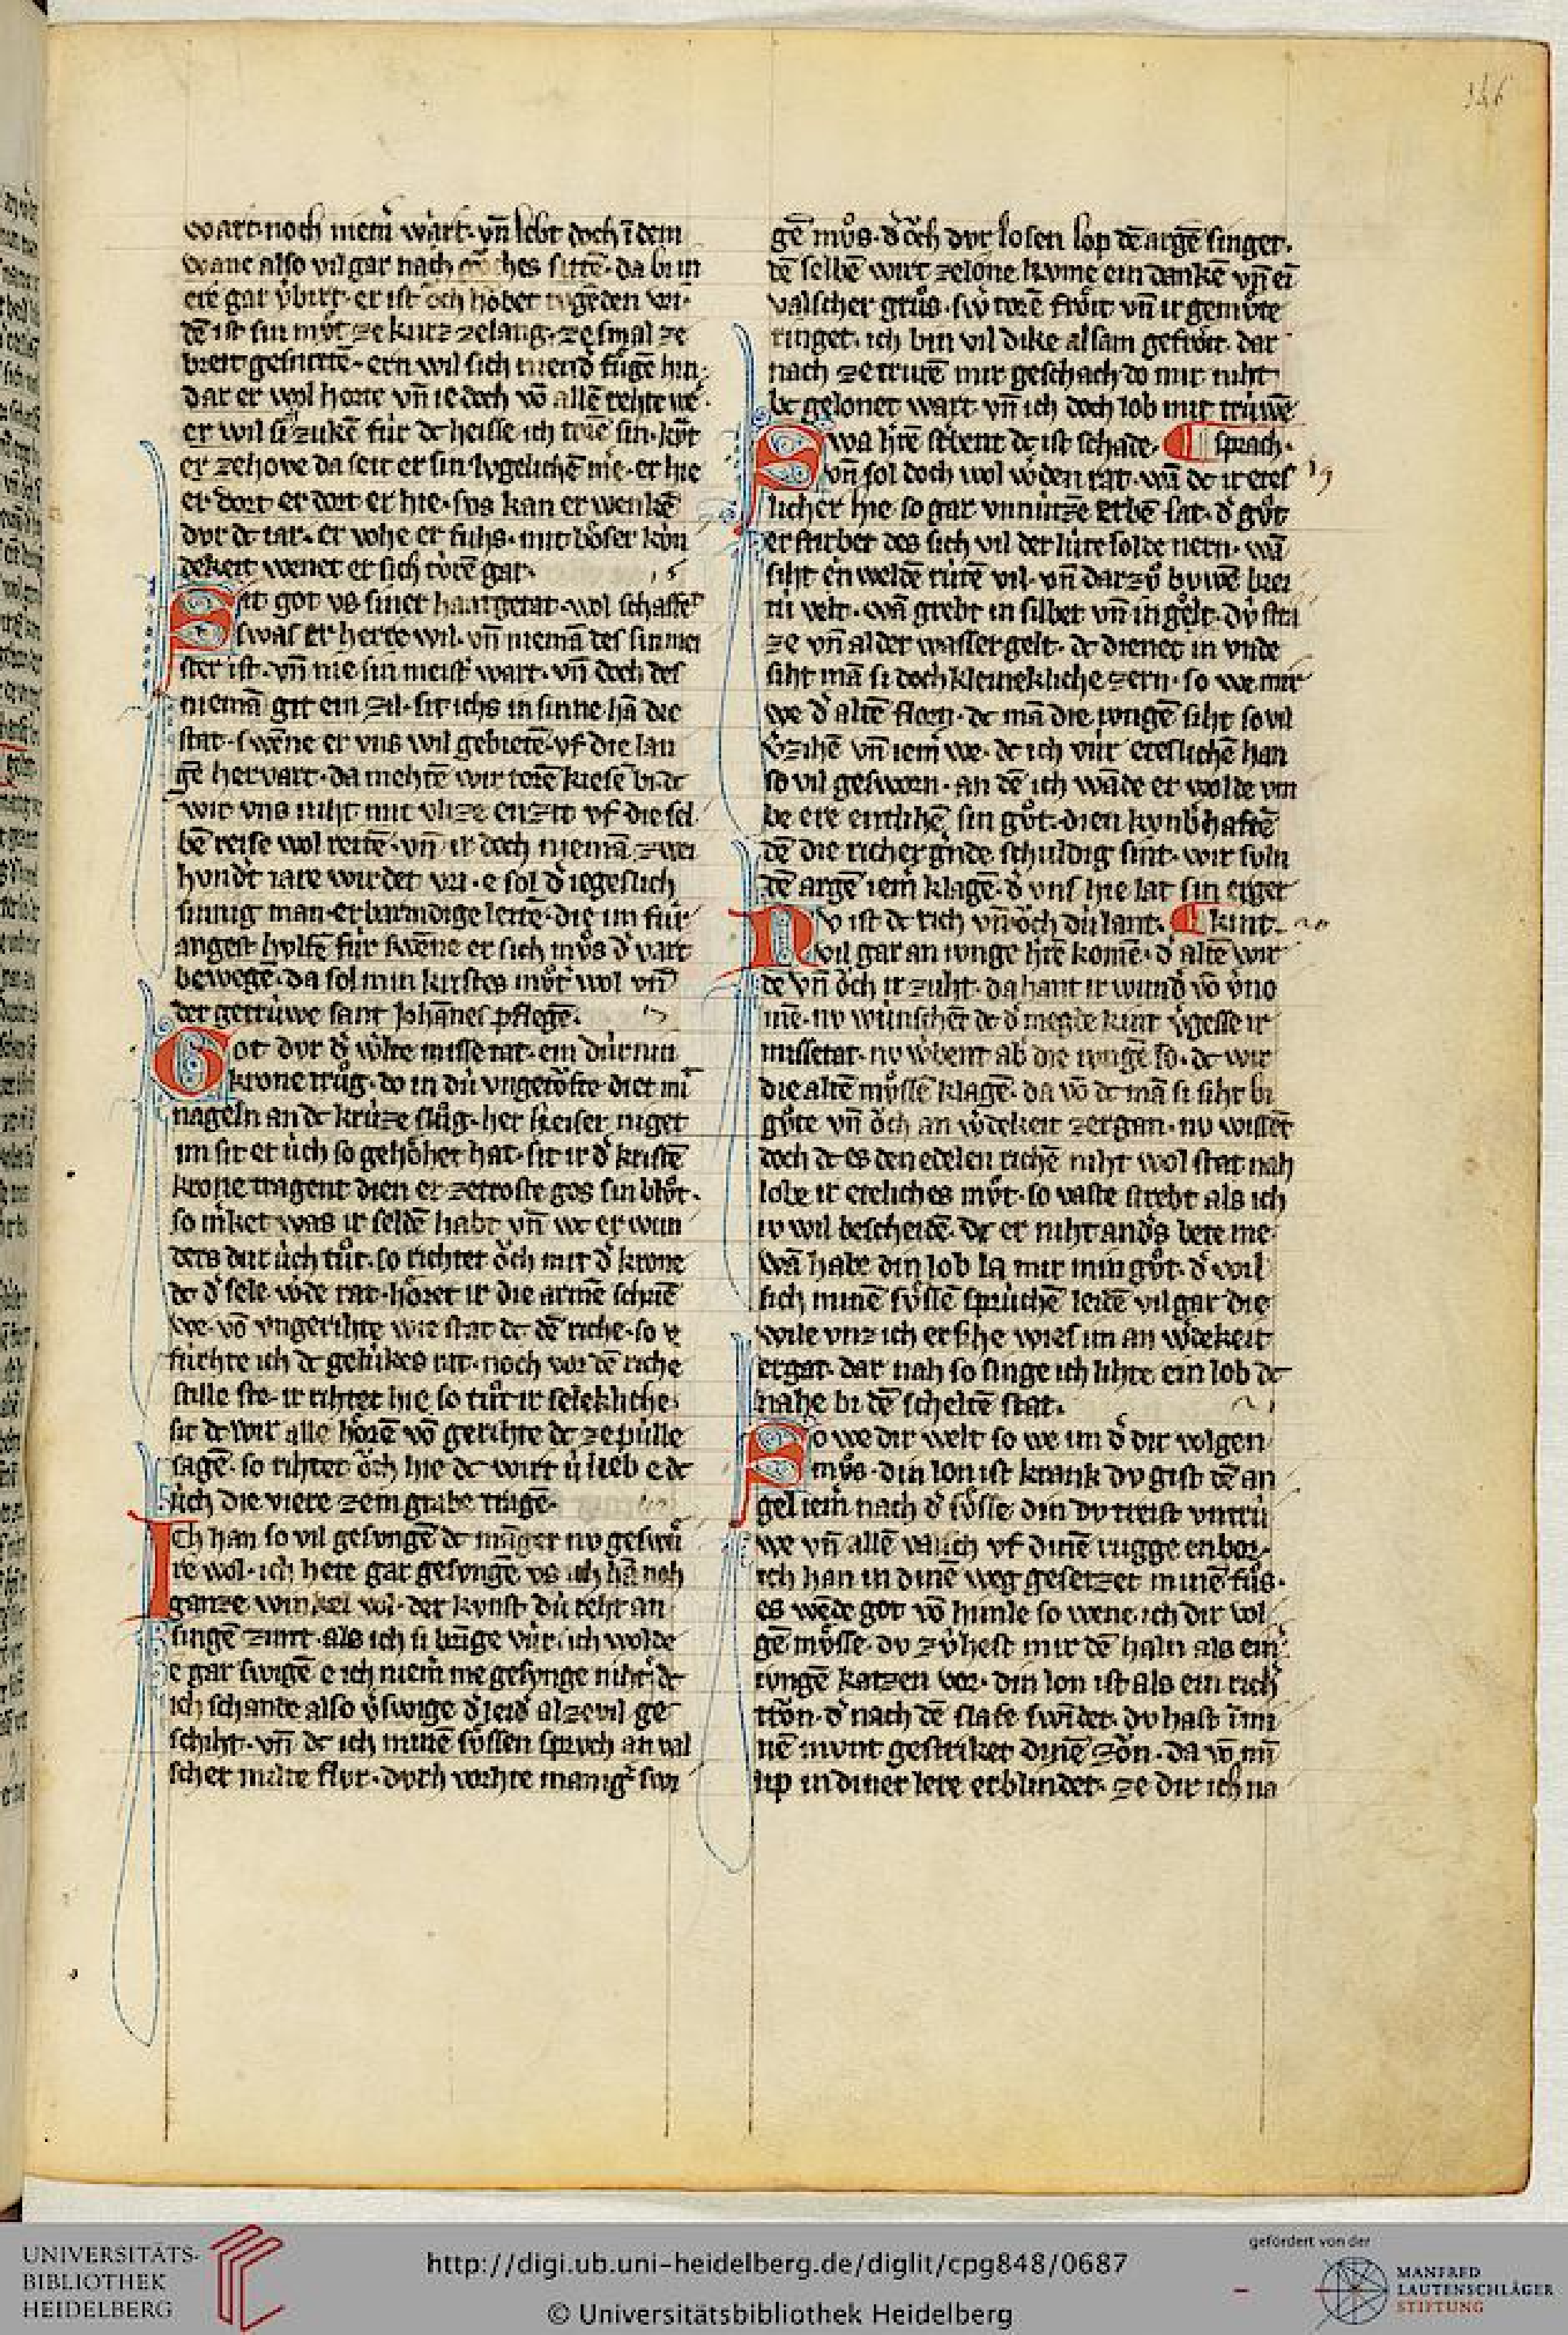 346
wart noch niem̄ wart· vn̄ lebt doch ī dem
wane also vil gar nach goͮches sittē· da bi in
ere gar v̓birt· er ist oͮch hoher tvgēden vri·
dē ist sin mv̊t ze kurz ze lang· ze smal ze
breit gesnittē· ern wil sich niend̓ fuͤgē hin·
dar er wol horte vn̄ iedoch vō allē rehte we·
er wil si zukē fúr dc heisse ich torē sin· kvͦt
er ze hove da seit er sin lvgelichē me· er hie
er dort er dort er hie· svs kan er wenkē
dvr dc iar· er vohe er fuhs· mit boͤser kvn
dekeit wenet er sich toͤrē gar·
Sit got vs siner hantgetat· wol schaffet
swas er herre wil· vn̄ niemā des sin mei
ster ist· vn̄ nie sin meist̓ wart· vn̄ doch des
niemā git ein zil· sit ichs in sinne hā die
stat· swēne er vns wil gebietē· vf die lan
gē hervart· da mehtē wir torē kiesē bi dc
wir vns niht mit vlize enzit vf die sel
bē reise wol reitē· vn̄ ir doch niemā zwei
hvnd̓t iare wirdet vri· e sol d̓ iegeslich
sinnig man· erbarmdige leitē· die im fúr
angest hvlfē für swēne er sich mvͦs d̓ vart
bewegē· da sol min kristes mvͦt̓ wol vn̄
der getrúwe sant Johānes pflegē·
Got dvr d̓ w̓lte missetat· ein dúrnin
krone trvͦg· do in dú vngetoͮfte diet mī
nageln an dc krúze slvͦg· her keiser niget
im sit er úch so gehoͤhet hat· sit ir d̓ kristē
krone tragent dien er ze troste gos sin blvͦt·
so m̓ket was ir seldē habt vn̄ wc er wun
ders dur úch tuͦt· so richtet oͮch mit d̓ krone
dc d̓ sele w̓de rat· hoͤret ir die armē schriē
we· vō vngerihte wie stat dc dē riche· so v̓
fúrhte ich dc gelúkes rat· noch vor dē riche
stille ste· ir rihtet hie so tuͦt ir selekliche·
sit dc wir alle hoͤrē vō gerihte dc ze púlle
sagē· so rihtet oͮch hie dc wirt ú lieb e dc
úch die viere zem grabe tragē·
Ich han so vil gesvngē dc māger nv geswuͤ
re wol· ich hete gar gesvngē vs ich hā noh
ganze winkel vol· der kvnst dú reht an
singē zimt· als ich si bringe vúr· ich wolde
e gar swigē e ich niem̄ me gesvnge niht· dc
ich schante also v̓swige d̓ leid̓ al ze vil ge
schiht· vn̄ dc ich minē suͤssen sprvch an val
scher milte flvr· dvrh vorhte manig̓ swi
gē mvͦs· d̓ oͮch dvr losen lop dē argē singet·
dē selbē wirt ze lone kvme ein dankē vn̄ eī
valscher grvͦs· sw̓ torē froͤit vn̄ ir gemvͤte
ringet· ich bin vil dike alsam gefroͤit· dar
nach ze trurē mir geschach do mir niht
bc gelonet wart· vn̄ ich doch lob mit trúwē
Swa h̓rē st̓bent dc ist schade· sprach·
vn̄ sol doch wol w̓den rat· wā dc ir etes
licher hie· so gar vnnútze erbē lat· d̓ gvͦt
er stirbet des sich vil der lúte solde nern· wā
siht en weldē rútē vil· vn̄ darzvͦ bvwē brei
tú velt· wā grebt in silber vn̄ in golt· dv̓ stra
ze vn̄ alder wassergelt· dc dienet in vnde
siht mā si doch kleinekliche zern· so we mir
we d̓ altē florn· dc mā die ivngē siht so vil
v̓zihē vn̄ iem̄ we· dc ich vúr eteslichē han
so vil gesworn· an dē ich wāde er wolde vm
be ere entlihē sin gvͦt· dien kvnb̓haftē
dē die richer gnde schuldig sint· wir svln
dē argē iem̄ klagē· d̓ vns hie lat sin erger
Nv ist dc rich vn̄ oͮch dú lant· kint·
vil gar an ivnge h̓rē komē· d̓ altē wir
de vn̄ oͮch ir zuht· da hant ir wund̓ vō v̓no
mē· nv wúnschēt dc d̓ megde kint v̓gesse ir
missetat· nv w̓bent ab die ivngē so· dc wir
die altē mvͤssē klagē· da vō dc mā si siht bi
gvͦte vn̄ oͮch an w̓dekeit zergan· nv wissēt
doch dc es den edelen richē niht wol stat nah
lobe ir etliches mvͦt· so vaste strebt als ich
iv wil bescheidē· dc er niht and̓s bete me·
wā habe din lob la mir min gvͦt· d̓ wil
sich minē svͤssē sprúchē leidē vil gar die
wile vnz ich ersihe wies im an w̓dekeit
ergat· dar nah so singe ich lihte ein lob dc
nahe bi dē scheltē stat·
So we dir welt so we im d̓ dir volgen
mvͦs· din lon ist krank dv gist dē an
gel iem̄ nach d̓ svͤsse· din dv treist vntrú
we vn̄ allē valsch vf dinē rugge enbor·
ich han in dinē weg gesetzet minē fuͦs·
es wēde got vō himle so wene ich dir vol
gē mvͤsse· dv zv̓hest mir dē halm als ein̓
ivngē katzen vor· din lon ist als ein rich̓
troͮn· d̓ nach dē slafe swīdet· dv hast ī mi
nē mvnt gestriket dinē zoͮn· da vō mī
lip in diner lere erblindet· ze dir ich na
UNIVERSITÄTS-
BIBLIOTHEK
HEIDELBERG
http://digi.ub.uni-heidelberg.de/diglit/cpg848/0687
© Universitätsbibliothek Heidelberg
gefördert von der
MANFRED
LAUTENSCHLÄGER
STIFTUNG